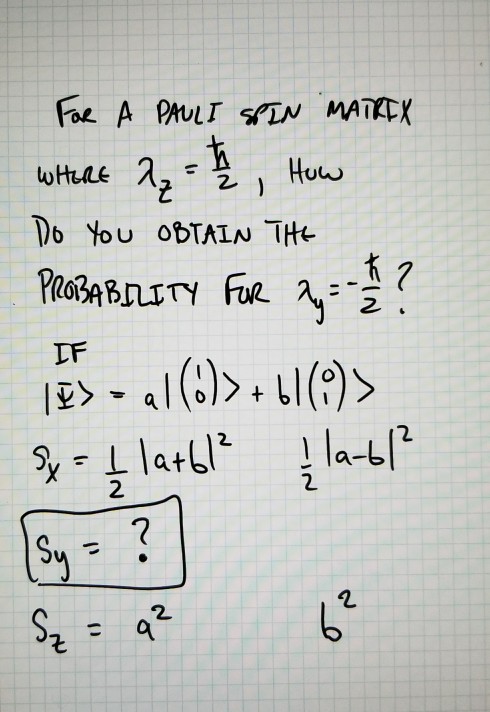 FOR A PAULI SPIN MATRIX
WHERE λ_z = ħ/2, HOW
DO YOU OBTAIN THE
PROBABILITY FOR λ_y = -ħ/2 ?
IF
|Ψ> = a|(1 0)> + b|(0 1)>
S_x = 1/2 |a+b|² 1/2 |a-b|²
S_y = ?
S_z = a² b²